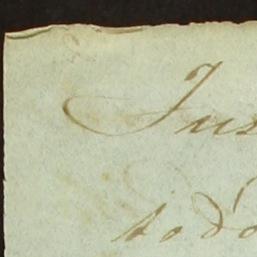 Jus
todo